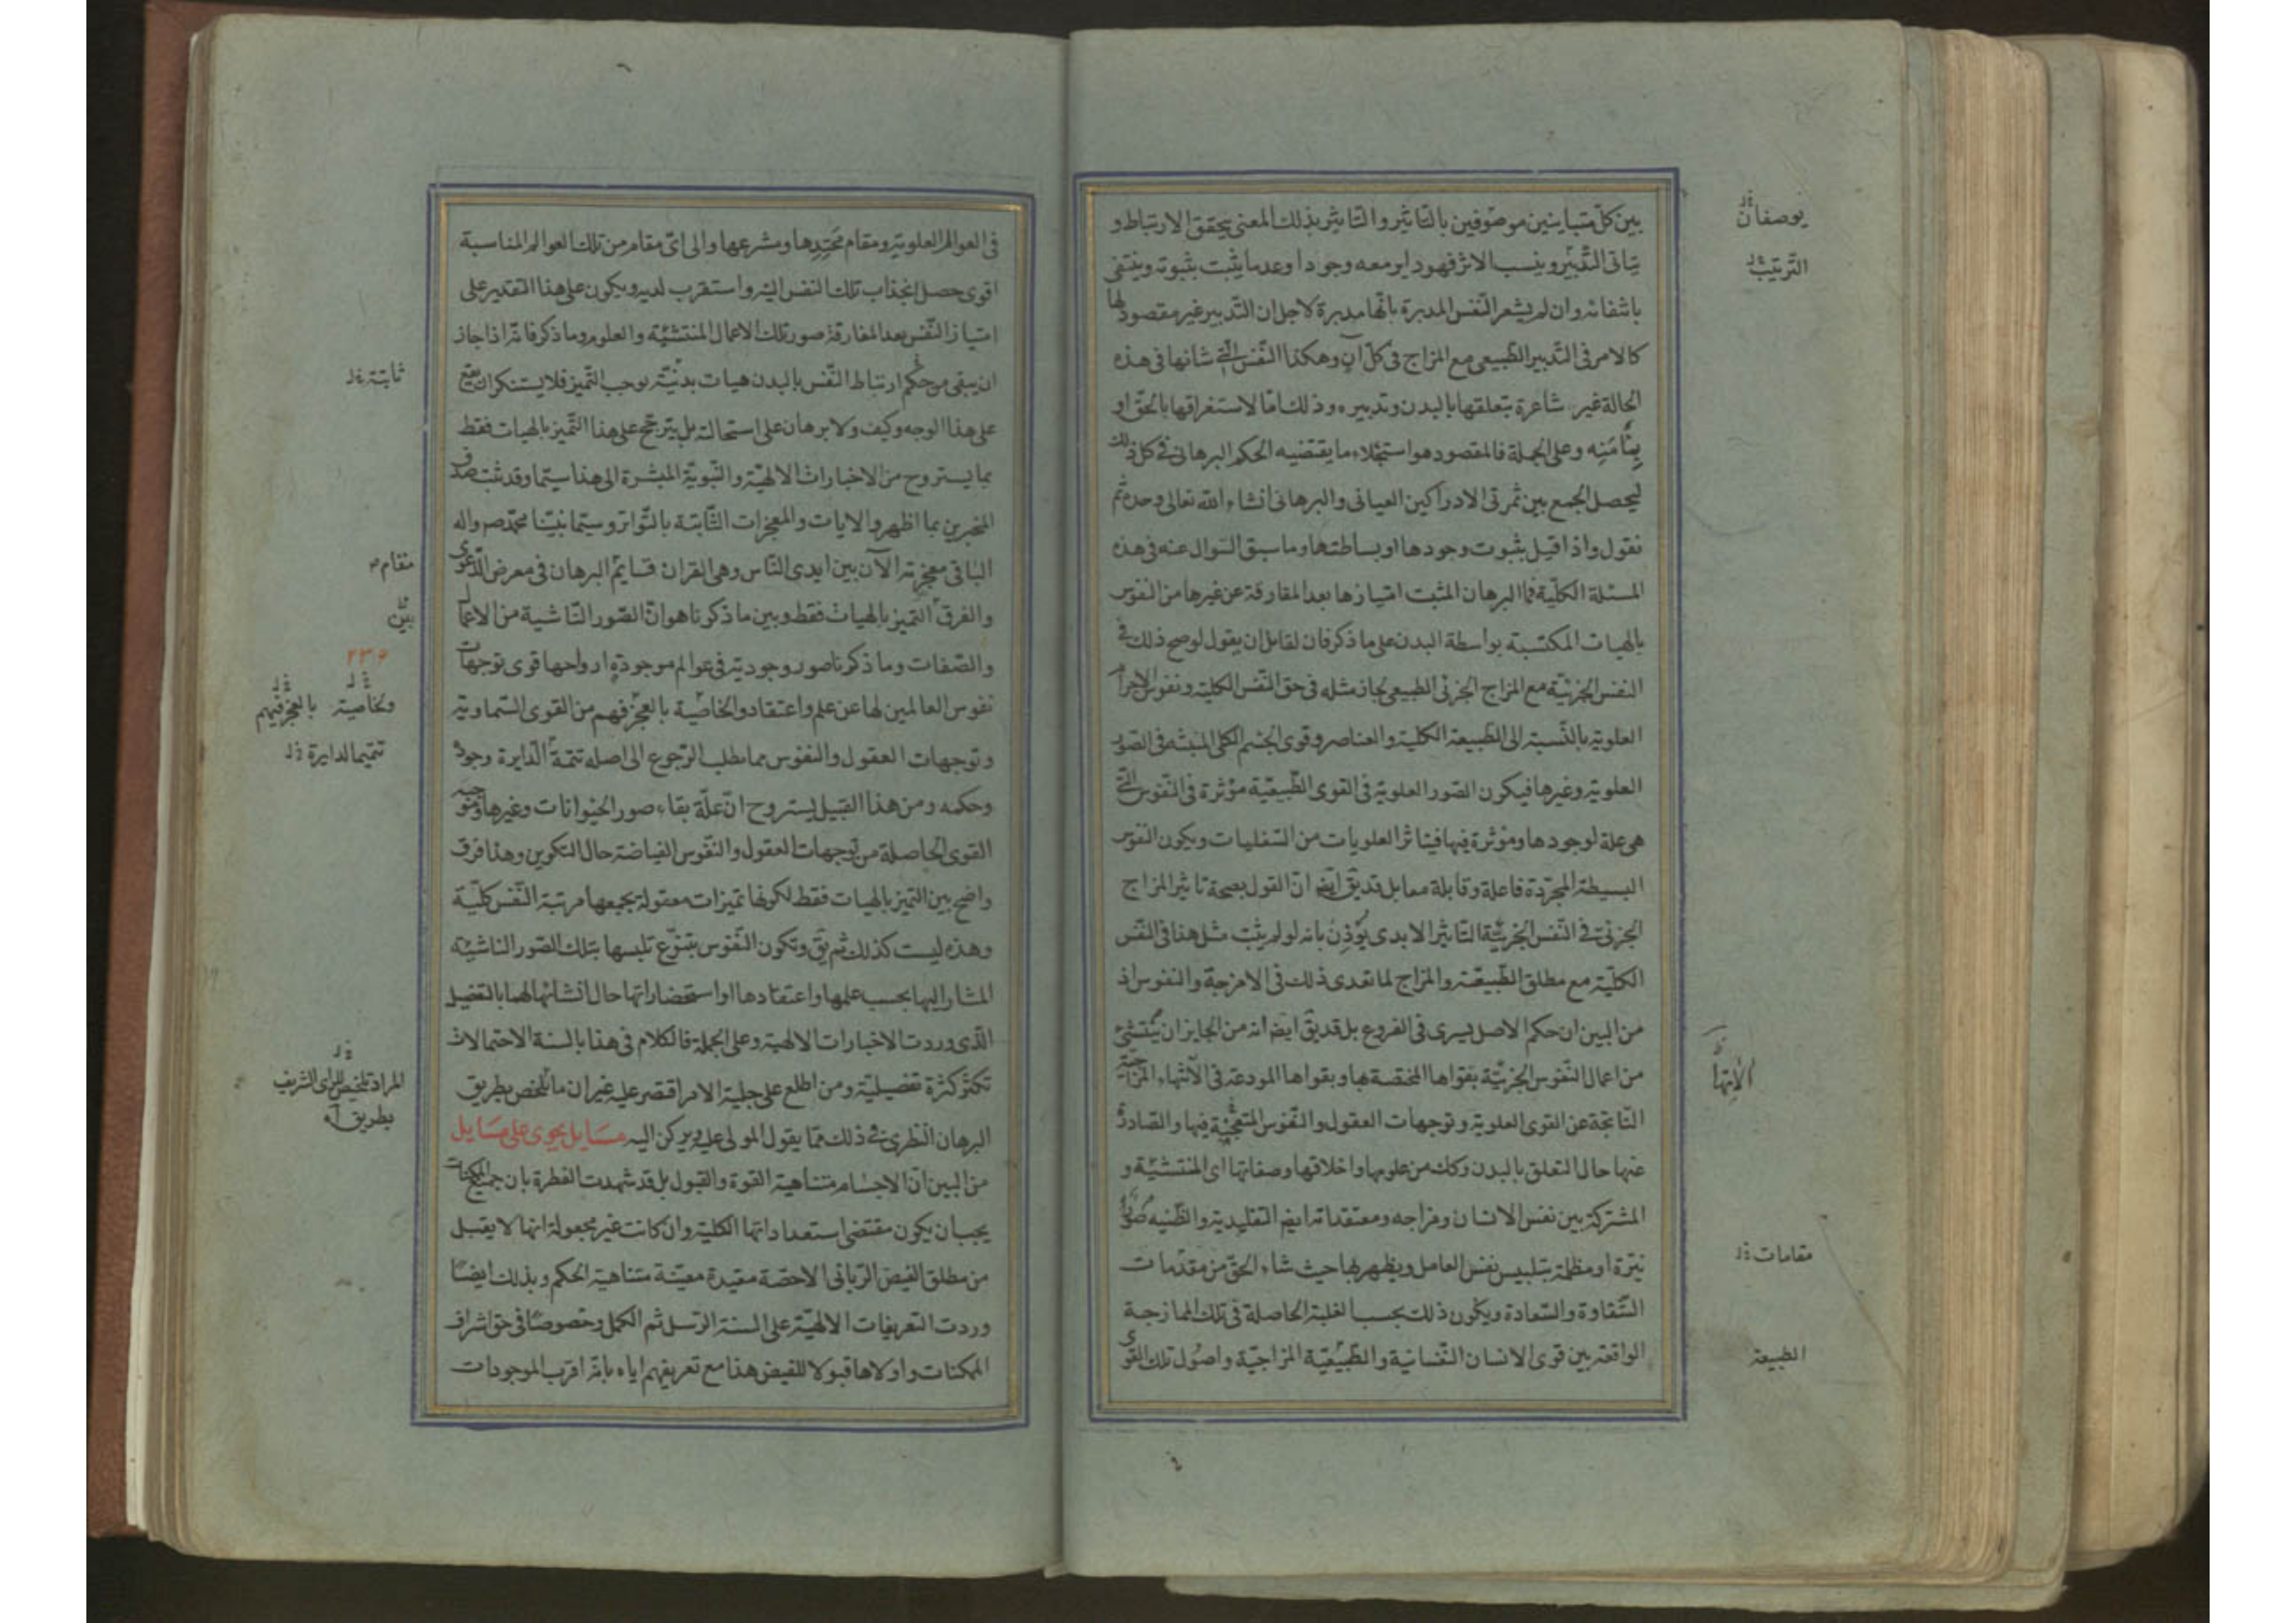 بين كلّ متباينين موصوفين بالتّاثير والتّاثير بذلك المعنى يتحقق الارتباط و
يتاتى التّدبير وينسب الاثر فهو داير معه وجودا وعدما يثبت بثبوته وينتفى
بانتفائه وان لم يشعر النّفس المدبرة بانّها مدبرة لاجل ان التّدبير غير مقصود لها
كالامر فى التّدبير الطّبيعى مع المزاج فى كلّ آن وهكذا النّفس الّتى شانها فى هذه
الحالة غير شاعرة بتعلقها بالبدن وتدبيره وذلك امّا لاستغراقها بالحقّ او
وعلى الجملة فالمقصود هو استجلاء ما يقتضيه الحكم البرهانى فى كل ذلك
ليحصل الجمع بين ثمرتى الادراكين العيانى والبرهانى انشاء الله تعالى وحده ثم
نقول واذا قيل بثبوت وجودها او بساطتها وما سبق السّوال عنه فى هذه
المسئلة الكلّية فما البرهان المثبت امتيازها بعد المفارقة عن غيرها من النفوس
بالهيات المكتسبة بواسطة البدن على ما ذكر فان لقايل ان يقول لو صح ذلك فى
النفس الجزئيّة مع المزاج الجزئى الطبيعى لجاز مثله فى حق النّفس الكلية ونفوس الاجرام
العلوية بالنّسبة الى الطّبيعة الكلية والعناصر وقوى الجسم الكلى المنبثه فى الصّور
العلوية وغيرها فيكون الصّور العلوية فى القوى الطّبيعيّة مؤثرة فى النّفوس الّتى
هى علة لوجودها ومؤثرة فيها فيتاثر العلويات من السّفليات ويكون النفوس
البسيطة المجرّدة فاعلة وقابلة معا بل قد يق ايض انّ القول بصحة تاثير المزاج
الجزئى فى النّفس الجزئيّة التّاثير الابدى يؤذن بانه لو لم يثبت مثل هذا فى النّفس
الكلّية مع مطلق الطّبيعة والمزاج لما تعدى ذلك فى الامزجة والنفوس اذ
من البين ان حكم الاصل يسرى فى الفروع بل قد يق ايض انه من الجايز ان ينتشئ
من اعمال النّفوس الجزئيّة بقواها المختصة بها وبقواها المودعة فى الآنتهاء المزاجيّة
النّاتجة عن القوى العلوية وتوجهات العقول والنّفوس فيها والصّادرة
عنها حال التعلق بالبدن وكك من علومها واخلاقها وصفاتها اى المنتشيّة و
المشتركة بين نفس الانسان ومزاجه ومعتقداته ايض التقليدية والظّنيه صور
نيّرة او مظلمة يتلبس نفس العامل ويظهر بها حيث شاء الحقّ من مقدّمات
الشّقاوة والسّعادة ويكون ذلك بحسب الغلبة الحاصلة فى تلك الممازجة
الواقعة بين قوى الانسان النّفسانية والطّبيعيّة المزاجيّة واصول تلك القوى
يوصفان
التّرتيب
مقامات
الطبيعة
فى العوالم العلوية ومقام محتدها ومشرعها والى اىّ مقام من تلك العوالم المناسبة
اقوى حصل انجذاب تلك النفس اليه واستقرب لديه ويكون على هذا التقدير على
امتياز النّفس بعد المفارقة صور تلك الاعمال المنتشيّه والعلوم وما ذكر فانّه اذا جاز
ان يبقى من حكم ارتباط النّفس بالبدن هيات بدنيّة يوجب التّميز فلا يستنكر ان يقع
على هذا الوجه وكيف ولا برهان على استحالته بل يترجّح على هذا التّميز بالهيات فقط
بما يستروح من الاخبارات الالهيّة والنّبويّة المبشرة الى هذا سيّما وقد ثبت صدق
المخبرين بما اظهر والايات والمعجزات الثّابتة بالتّواتر وسيّما نبيّنا محمّد ص واله
الباقى معجزته الآن بين ايدى النّاس وهى القران قايم البرهان فى معرض الدّعوى
والفرق التّميز بالهيات فقط وبين ما ذكرنا هو انّ الصّور النّاشية من الاعمال
والصّفات وما ذكرنا صور وجودية فى عوالم موجودة ارواحها قوى توجهات
نفوس العالمين لها عن علم واعتقاد والخاصّية بالعجز فهم من القوى السّماوية
وتوجهات العقول والنفوس مما يطلب الرّجوع الى اصله تتمة الدّايرة وجودا
وحكمه ومن هذا القبيل يستروح انّ علّة بقاء صور الحيوانات وغيرها
القوى الحاصلة من توجهات العقول والنّفوس الفياضة حال التكوين وهذا فرق
واضح بين التميز بالهيات فقط لكونها تميزات معقولة يجمعها مرتبة النّفس كلّية
وهذه ليست كذلك ثم يق وتكون النّفوس بتنوّع تلبسها بتلك الصّور الناشيّه
المشار اليها بحسب علمها واعتقادها او استحضاراتها حال انشائها لها بالتفصيل
الّذى وردت الاخبارات الالهية وعلى الجملة فالكلام فى هذا بالسنة الاحتمالات
تكثر كثرة تفصيليّة ومن اطلع على جلية الامر اقتصر عليه غير ان ما تلخص بطريق
البرهان النظرى فى ذلك ممّا يقول المولى عليه ويركن اليه مسايل يحوى على مسايل
من البين انّ الاجسام متناهية القوة والقبول بل قد شهدت الفطرة بان جميع الممكنات
يجب ان يكون مقتضى استعداداتها الكلية وان كانت غير مجعولة انها لا يقبل
من مطلق الفيض الرّبانى الا حصّة مقيدة معيّنة متناهية الحكم وبذلك ايضا
وردت التعريفات الالهيّة على السنة الرّسل ثم الكمل وخصوصا فى حق اشراف
الممكنات واولاها قبولا للفيض هذا مع تعريفهم اياه بانّه اقرب الموجودات
ثابتة
مقام
بين
۲۳۶
وبخاصية بالعجز فيهم
تتميما لدايرة
المراد تلخيص الراى الشريف
بطريق آه